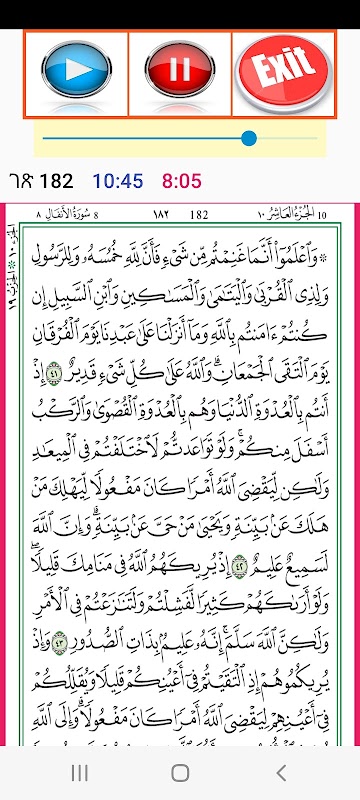 Exit
ገጽ 182 10:45 8:05
٨ سُورَةُ الأَنفَال 8 ١٨٢ 182 الجُزْءُ العَاشِرُ ١٠ 10
۞ وَٱعۡلَمُوٓاْ أَنَّمَا غَنِمۡتُم مِّن شَيۡءٖ فَأَنَّ لِلَّهِ خُمُسَهُۥ وَلِلرَّسُولِ
وَلِذِي ٱلۡقُرۡبَىٰ وَٱلۡيَتَٰمَىٰ وَٱلۡمَسَٰكِينِ وَٱبۡنِ ٱلسَّبِيلِ إِن
كُنتُمۡ ءَامَنتُم بِٱللَّهِ وَمَآ أَنزَلۡنَا عَلَىٰ عَبۡدِنَا يَوۡمَ ٱلۡفُرۡقَانِ
يَوۡمَ ٱلۡتَقَى ٱلۡجَمۡعَانِۗ وَٱللَّهُ عَلَىٰ كُلِّ شَيۡءٖ قَدِيرٌ ٤١ إِذۡ
أَنتُم بِٱلۡعُدۡوَةِ ٱلدُّنۡيَا وَهُم بِٱلۡعُدۡوَةِ ٱلۡقُصۡوَىٰ وَٱلرَّكۡبُ
أَسۡفَلَ مِنكُمۡۚ وَلَوۡ تَوَاعَدتُّمۡ لَٱخۡتَلَفۡتُمۡ فِي ٱلۡمِيعَٰدِ
وَلَٰكِن لِّيَقۡضِيَ ٱللَّهُ أَمۡرٗا كَانَ مَفۡعُولٗا لِّيَهۡلِكَ مَنۡ
هَلَكَ عَنۢ بَيِّنَةٖ وَيَحۡيَىٰ مَنۡ حَيَّ عَنۢ بَيِّنَةٖۗ وَإِنَّ ٱللَّهَ
لَسَمِيعٌ عَلِيمٌ ٤٢ إِذۡ يُرِيكَهُمُ ٱللَّهُ فِي مَنَامِكَ قَلِيلٗاۖ
وَلَوۡ أَرَىٰكَهُمۡ كَثِيرٗا لَّفَشِلۡتُمۡ وَلَتَنَٰزَعۡتُمۡ فِي ٱلۡأَمۡرِ
وَلَٰكِنَّ ٱللَّهَ سَلَّمَۚ إِنَّهُۥ عَلِيمُۢ بِذَاتِ ٱلصُّدُورِ ٤٣ وَإِذۡ
يُرِيكُمُوهُمۡ إِذِ ٱلۡتَقَيۡتُمۡ فِيٓ أَعۡيُنِكُمۡ قَلِيلٗا وَيُقَلِّلُكُمۡ
فِيٓ أَعۡيُنِهِمۡ لِيَقۡضِيَ ٱللَّهُ أَمۡرٗا كَانَ مَفۡعُولٗاۗ وَإِلَى ٱللَّهِ